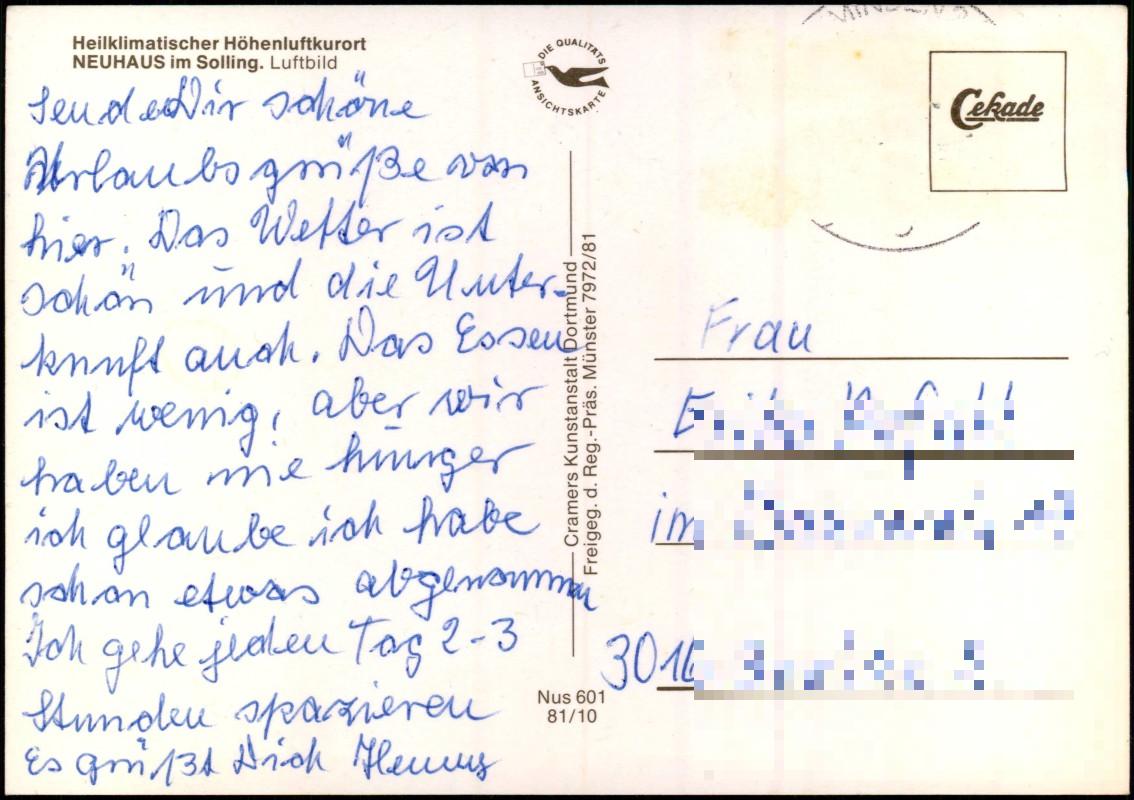 Heilklimatischer Höhenluftkurort
NEUHAUS im Solling. Luftbild
Sende Dir schöne
Urlaubsgrüße von
hier. Das Wetter ist
schön und die Unter-
kunft auch. Das Essen
ist wenig, aber wir
haben nie hunger
ich glaube ich habe
schon etwas abgenommen
Ich gehe jeden Tag 2-3
Stunden spazieren
Es grüßt Dich
DIE QUALITÄTS
ANSICHTSKARTE
Cramers Kunstanstalt Dortmund
Freigeg. d. Reg.-Präs. Münster 7972/81
Nus 601
81/10
Cekade
Frau
im
301